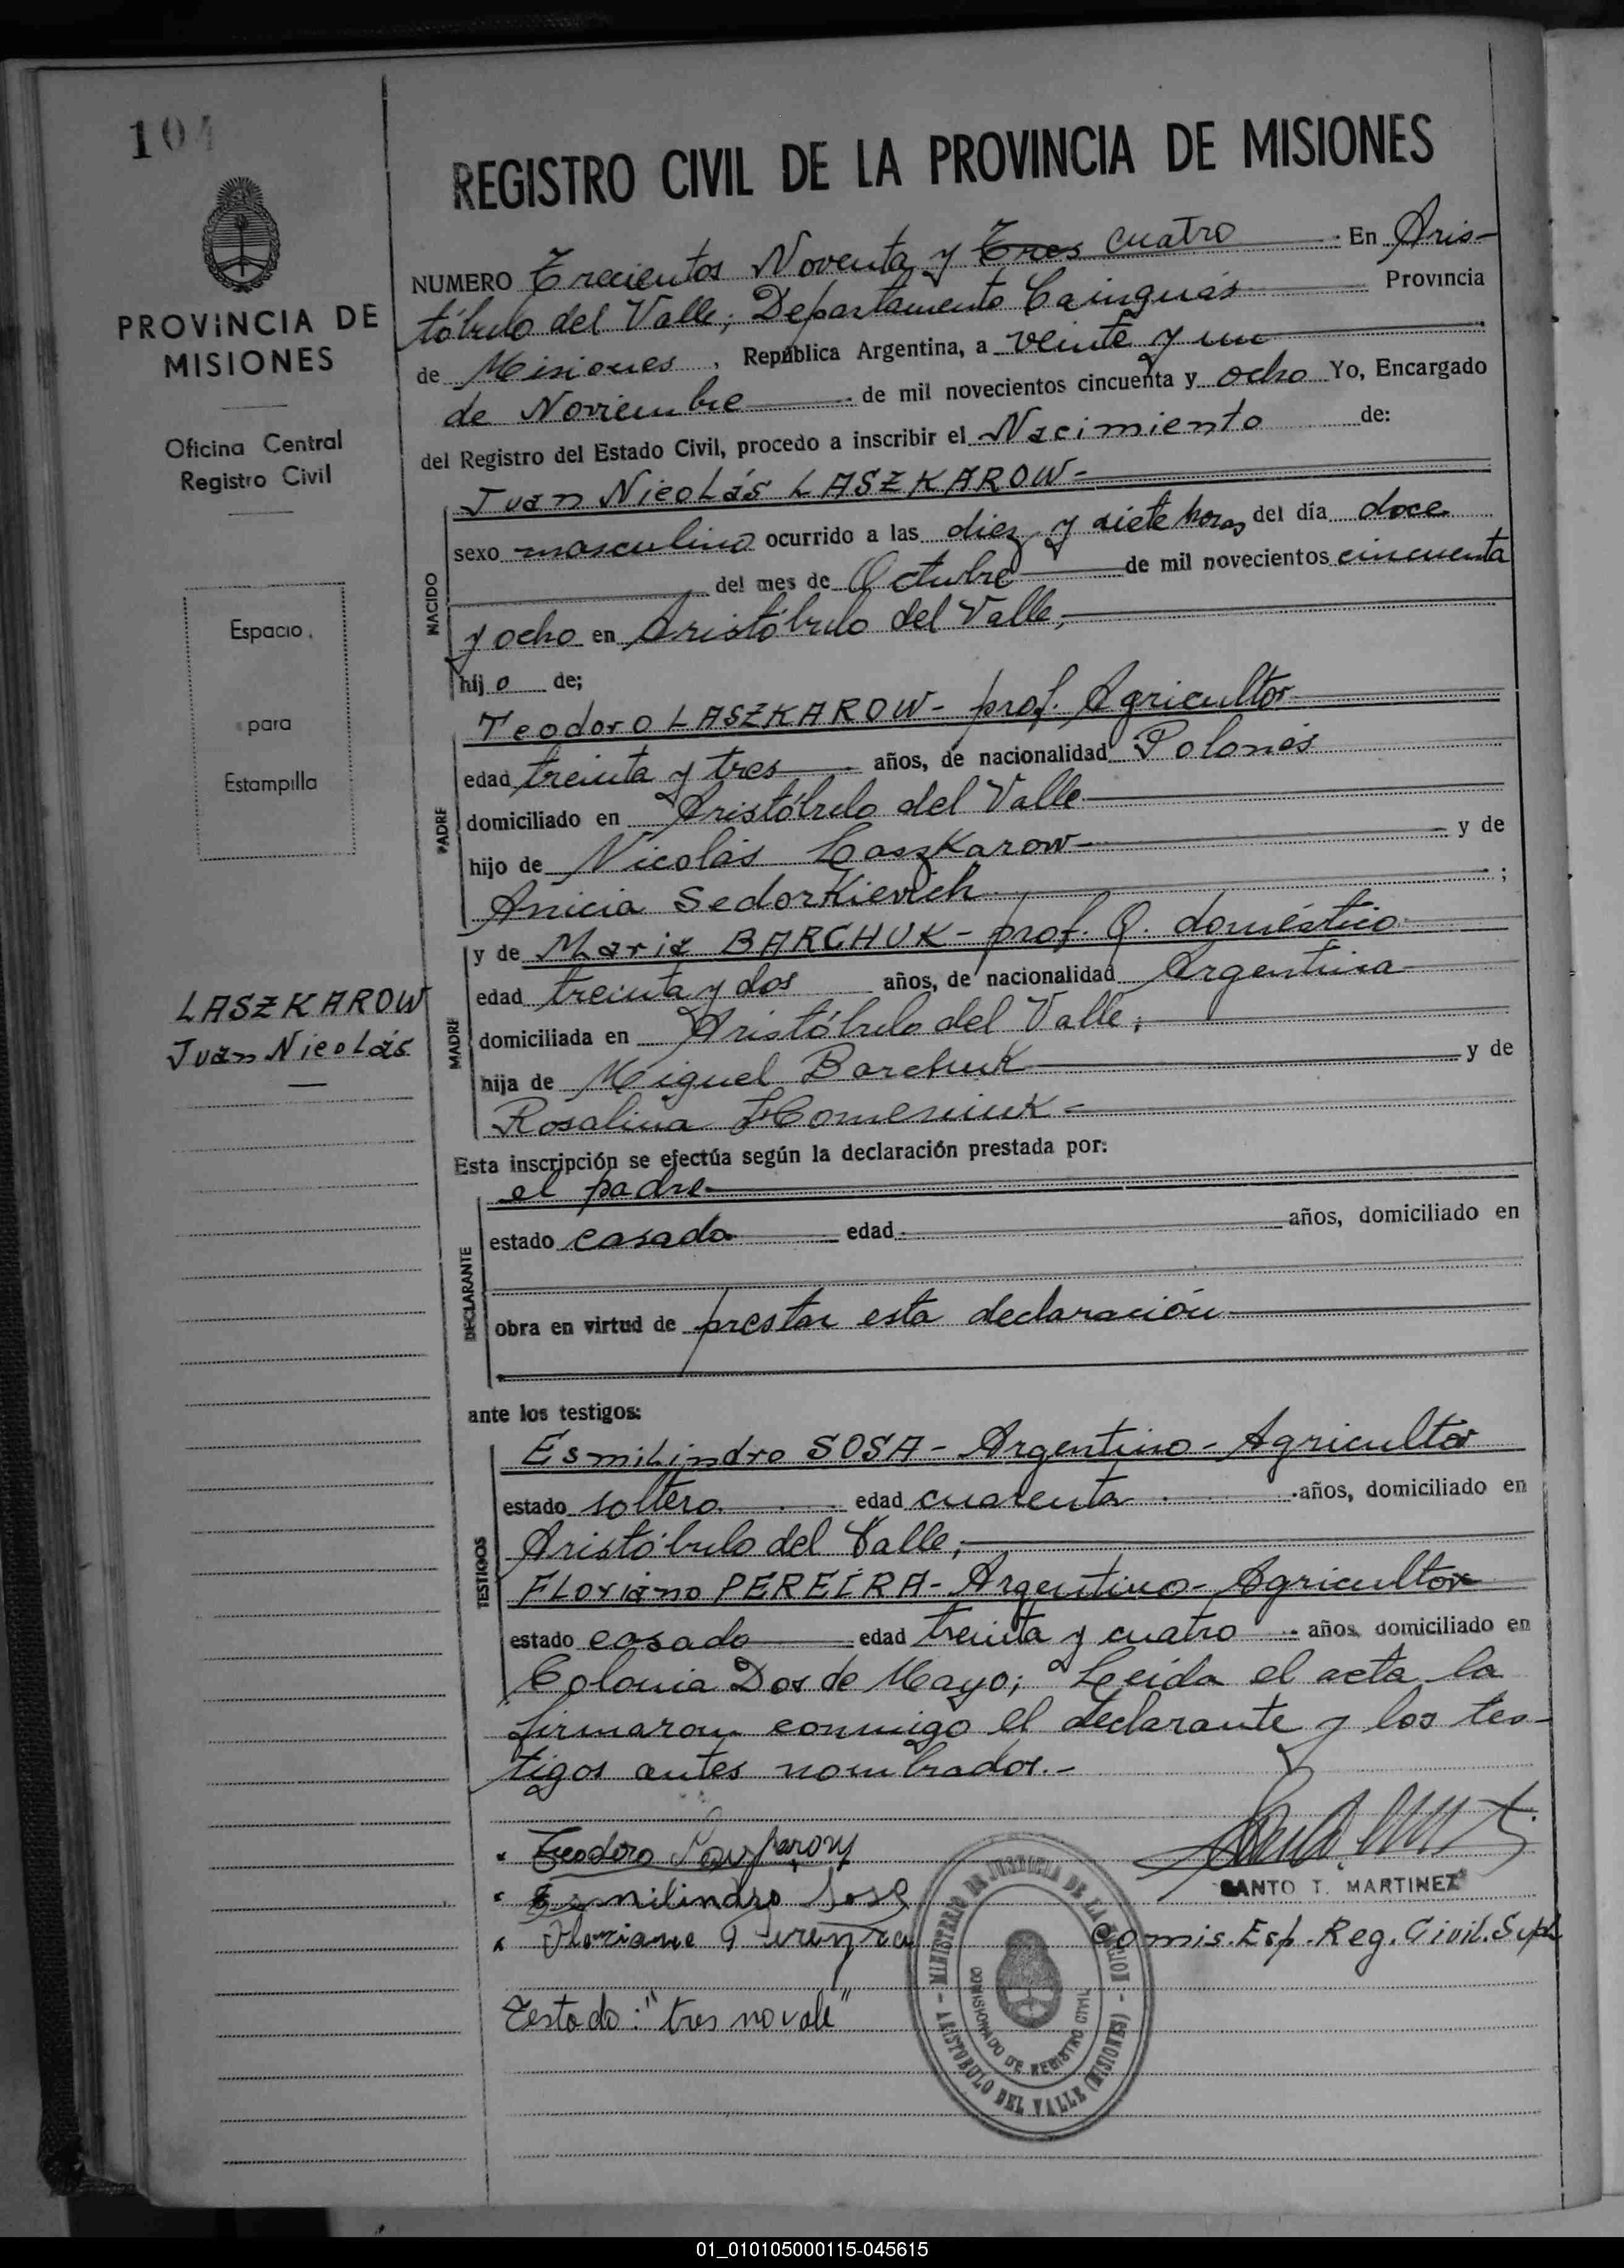 104
PROVINCIA DE
MISIONES
Oficina Central
Registro Civil
Espacio
para
Estampilla
LASZKAROW
Juan Nicolás
REGISTRO CIVIL DE LA PROVINCIA DE MISIONES
NUMERO Trecientos Noventa y Tres cuatro En Aris-
tóbulo del Valle; Departamento Cainguás Provincia
de Misiones, República Argentina, a veinte y un
de Noviembre de mil novecientos cincuenta y ocho Yo, Encargado
del Registro del Estado Civil, procedo a inscribir el Nacimiento de:
NACIDO
Juan Nicolás LASZKAROW-
sexo masculino ocurrido a las diez y siete horas del día doce
del mes de Octubre de mil novecientos cincuenta
y ocho en Aristóbulo del Valle;
hijo de;
PADRE
Teodoro LASZKAROW- prof. Agricultor
edad treinta y tres años, de nacionalidad Polonés
domiciliado en Aristóbulo del Valle
hijo de Nicolás Laszkarow y de
Anicia Sedorkievich ;
MADRE
y de Maria BARCHUK- prof. Q. doméstico
edad treinta y dos años, de nacionalidad Argentina
domiciliada en Aristóbulo del Valle;
hija de Miguel Barchuk y de
Rosalina Homeniuk-
Esta inscripción se efectúa según la declaración prestada por:
DECLARANTE
el padre
estado casado edad años, domiciliado en
obra en virtud de prestar esta declaración
ante los testigos:
TESTIGOS
Esmilindro SOSA- Argentino- Agricultor
estado soltero edad cuarenta años, domiciliado en
Aristóbulo del Valle;
Floriano PEREIRA- Argentino- Agricultor
estado casado edad treinta y cuatro años, domiciliado en
Colonia Dos de Mayo; Leida el acta la
firmaron conmigo el declarante y los tes-
tigos antes nombrados.-
Teodoro
Esmilindro Sosa
Floriano
SANTO T. MARTINEZ
Comis. Esp. Reg. Civil. Supl
MINISTERIO DE JUSTICIA DE LA NACION
- ARISTOBULO DEL VALLE (MISIONES) -
COMISIONADO DE REGISTRO CIVIL
Testado: "tres no vale"
01_010105000115-045615